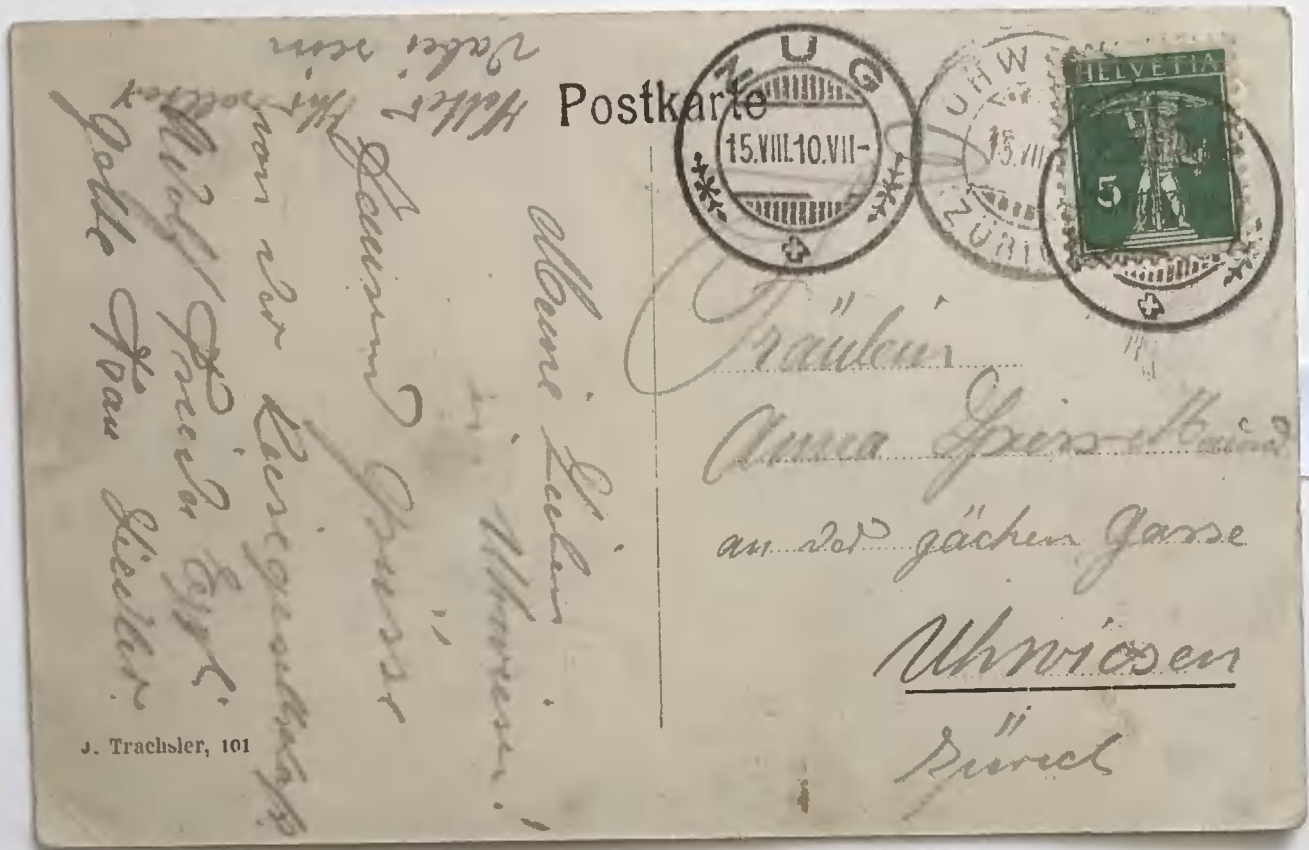 Postkarte
ZUG
15.VIII.10.VII-
UHW
15.VII
ZÜRI
HELVETIA
5
Fräulein
Anna
an der gächen Gasse
Uhwiesen
Zürich
Meine Lieben
in Uhwiesen!
Tausend Grüsse
von der Reisegesellschaft
Adolf Frieda
Gotte Frau
Hättet Ihr sollen
dabei sein
J. Trachsler, 101